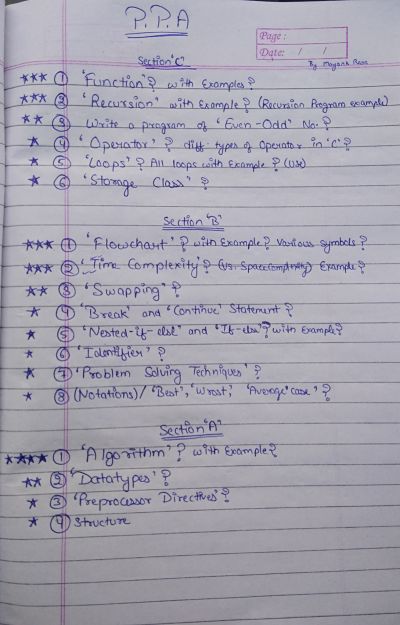 P.P.A
Page:
Date: / /
Section 'C'
By Mayank Rana
*** ① 'Function'? with Examples?
*** ② 'Recursion' with Example? (Recursion Program example)
** ③ Write a program of 'Even-Odd' No.?
* ④ 'Operator'? diff. types of Operator in 'C'?
* ⑤ 'Loops'? All loops with Example? (Use)
* ⑥ 'Storage Class'?
Section 'B'
*** ① 'Flowchart'? with Example? Various Symbols?
*** ② 'Time Complexity'? (Vs. Space Complexity) Example?
** ③ 'Swapping'?
* ④ 'Break' and 'Continue' Statement?
* ⑤ 'Nested-if-else' and 'If-else'? with Example?
* ⑥ 'Identifier'?
* ⑦ 'Problem Solving Techniques'?
* ⑧ (Notations) / 'Best', 'Wrost', 'Average' case'?
Section 'A'
**** ① 'Algorithm'? with Example?
** ② 'Datatypes'?
* ③ 'Preprocessor Directives'?
* ④ Structure